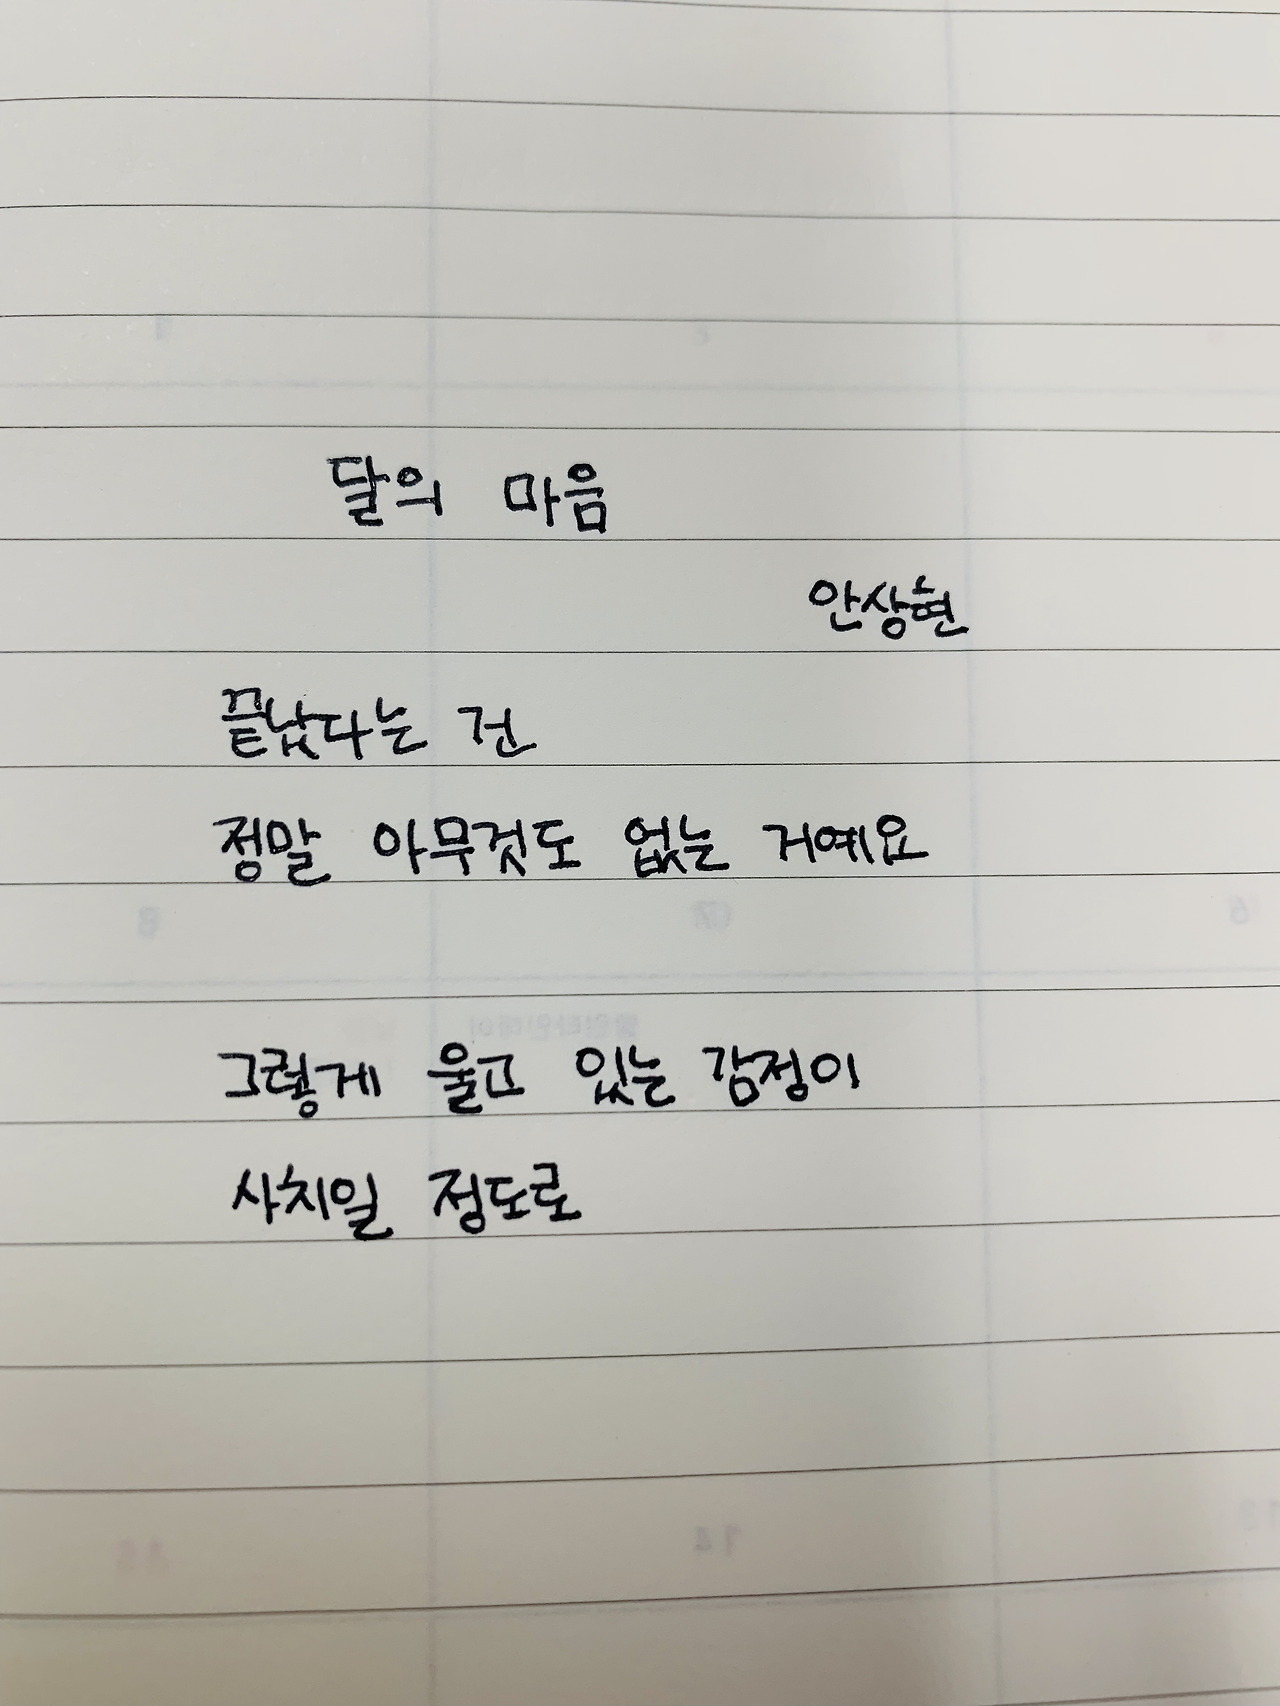 달의 마음
안상현
끝났다는 건
정말 아무것도 없는 거예요
그렇게 울고 있는 감정이
사치일 정도로